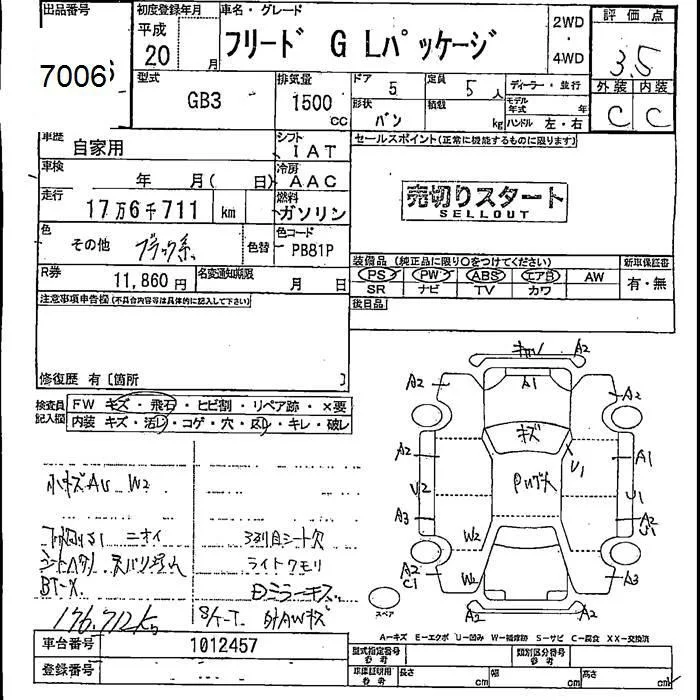 出品番号
7006
初度登録年月
平成
20 月
車名・グレード
フリード G Lパッケージ
2WD
・
4WD
評価点
3.5
外装 内装
C C
型式
GB3
排気量
1500
cc
ドア
5
定員
5 人
形状
バン
積載
kg
ディーラー・並行
モデル年式 年
ハンドル 左・右
車歴
自家用
シフト
IAT
車検
年 月( 日)
冷房
AAC
走行
17万6千711 km
燃料
ガソリン
色
その他 ブラック系
色替
色コード
PB81P
R券
11,860円
名変通知期限
月 日
セールスポイント(正常に機能するものに限ります)
売切りスタート
SELLOUT
装備品 (純正品に限り○をつけてください)
PS PW ABS エアB AW
SR ナビ TV カワ
新車保証書
有・無
後日品
注意事項申告欄(不具合内容等は具体的に記入して下さい)
修復歴 有〔箇所 〕
検査員
記入欄
FW キズ・飛石・ヒビ割・リペア跡・×要
内装 キズ・汚レ・コゲ・穴・切レ・キレ・破レ
小キズAU W2
下回りサビ ニオイ
3列目シート欠
ライトクモリ
Dミラーキズ
176,712km
外AWキズ
キズ A2
A2 A1 A2
A2 キズ U1 A1
U2 U1
A3 W2 A2
U1
A2
C1 W2 A3
A2 A2
スペア
A−キズ E−エクボ U−凹み W−補修跡 S−サビ C−腐食 XX−交換済
車台番号
1012457
登録番号
型式指定番号
参考
類別区分番号
参考
車庫証明用
参考
長さ cm
幅 cm
高さ cm